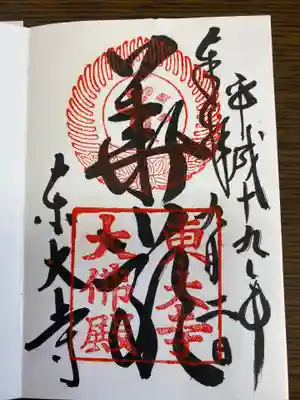 平成十九年
奉拝
華厳
東大寺
東大寺
大佛殿